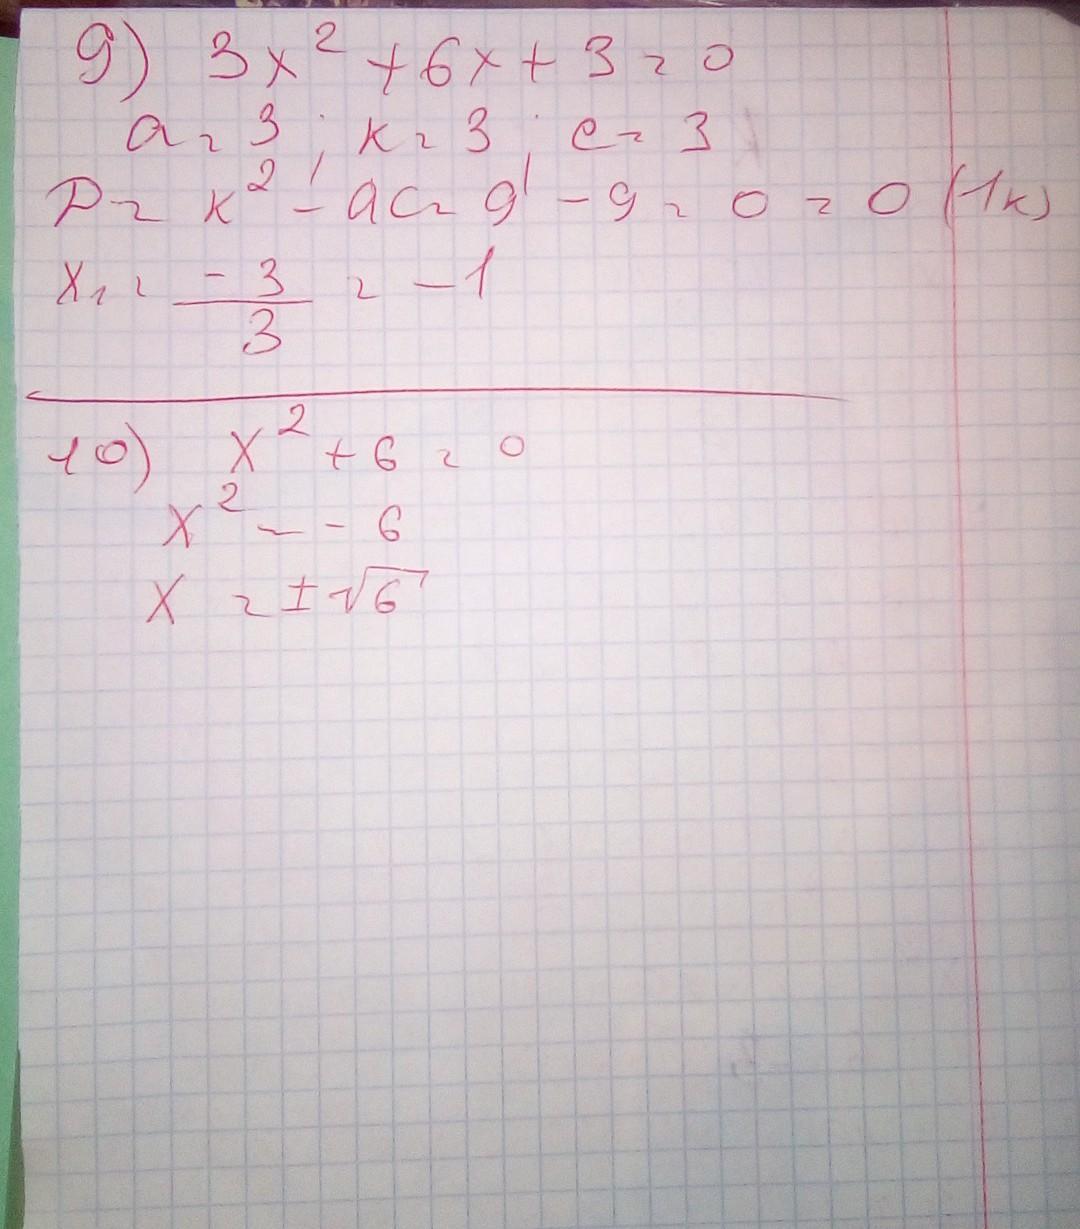 9) 3x² + 6x + 3 = 0
a = 3 ; к = 3 ; c = 3
D = к² - ac = 9 - 9 = 0 = 0 (1к)
x₁ = -3/3 = -1
10) x² + 6 = 0
x² = - 6
x = ±√6